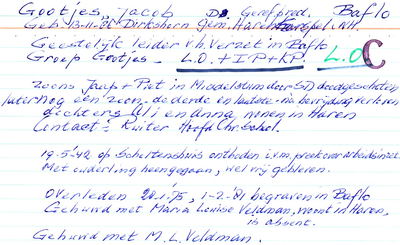 Gootjes, Jacob Ds. Gerefpred. Baflo
Geb. 13-11-'06 Dirkshorn gem. Harenkarspel, NH.
Geestelijk leider v.h. Verzet in Baflo
Groep Gootjes - L.O. + I P + K.P. L.O. C
zoons Jaap + Piet in Middelstum door SD doodgeschoten
later nog een zoon, de derde en laatste - na bevrijding verloren
dochters Ali en Anna wonen in Haren
Contact: Ruiter Hoofd Chr. School.
19-5-'42 op Scholtenshuis ontboden i.v.m. preek over arbeidsinzet.
Met ouderling heengegaan, wel vrij gebleven.
Overleden begraven in Baflo
Gehuwd met Maria Louise Veldman, woont in Haren,
is absent.
Gehuwd met M.L. Veldman.